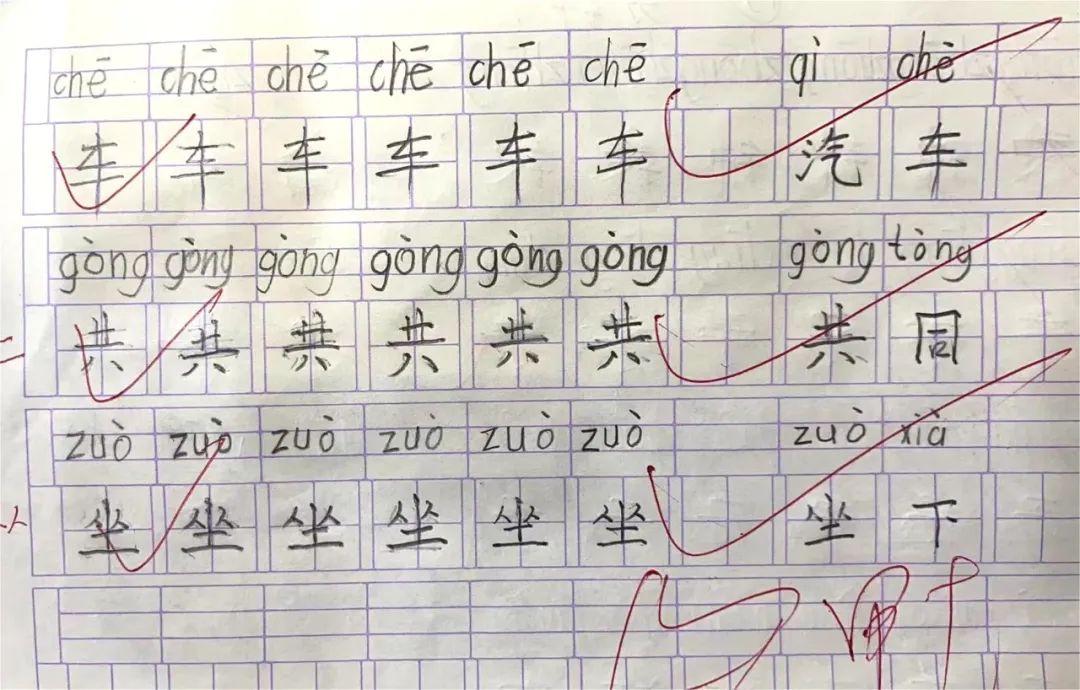 chē chē chē chē chē chē qì chē
车 车 车 车 车 车 汽 车
gòng gòng gòng gòng gòng gòng gòng tòng
共 共 共 共 共 共 共 同
zuò zuò zuò zuò zuò zuò zuò xià
坐 坐 坐 坐 坐 坐 坐 下